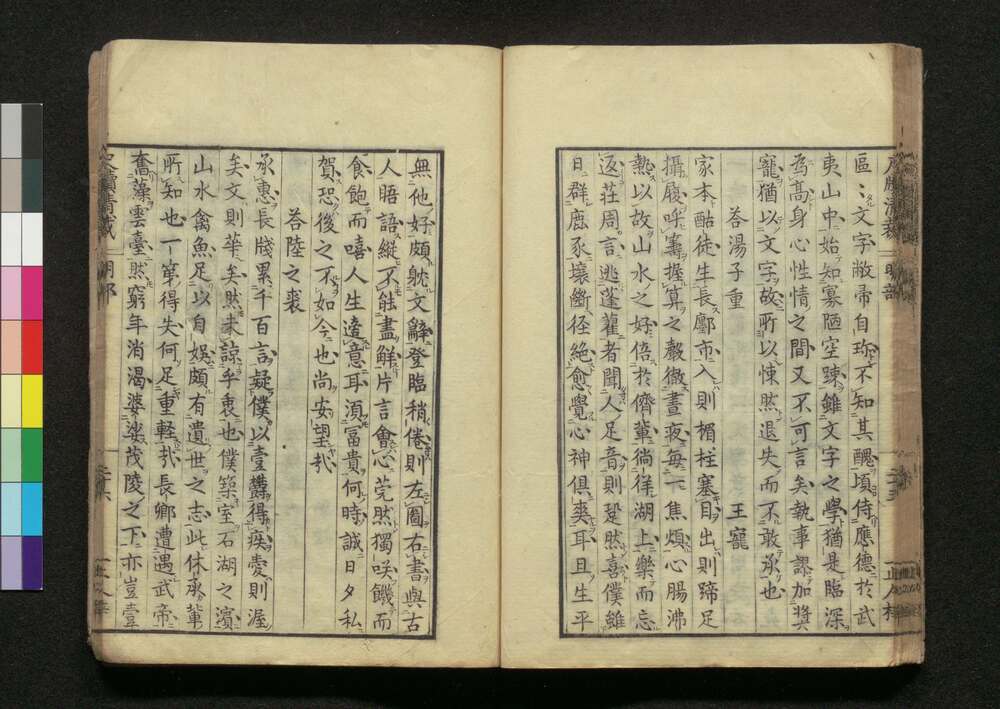 區〻文字敝帚自珎不知其醜頃侍應德於武
夷山中始知寡陋空踈雖文字之學猶是臨深
為髙身心性情之間又不可言矣執事謬加奨
寵猶以文字故所以悚然退失而不敢承也
荅湯子重　王寵
家本酤徒生長鄽市入則楣柱塞目出則蹄足
攝履呼籌握算之聲徹晝夜每一焦煩心腸沸
熱以故山水之好倍於儕輩徜徉湖上樂而忘
返莊周言逃蓬藋者聞人足音則跫然喜僕雖
日群鹿豕壤斷径絶愈覺心神俱爽耳且生平
無他好頗躭文辭登臨稍倦則左圖右書與古
人晤語縱不能盡鮮片言會心莞然獨咲饑而
食飽而嘻人生適意耳湏冨貴何時誠日夕私
賀恐後之不如今也尚安望㢤
荅陸之裘
承惠長牋累千百言疑僕以壹欝得疾愛則渥
矣文則華矣然未諒乎衷也僕築室石湖之濱
山水禽魚足以自娯頗有遺世之志此休承輩
所知也一第得失何足重軽㢤長卿遭遇武帝
奮藻雲臺然窮年消渴婆娑茂陵之下亦豈壹